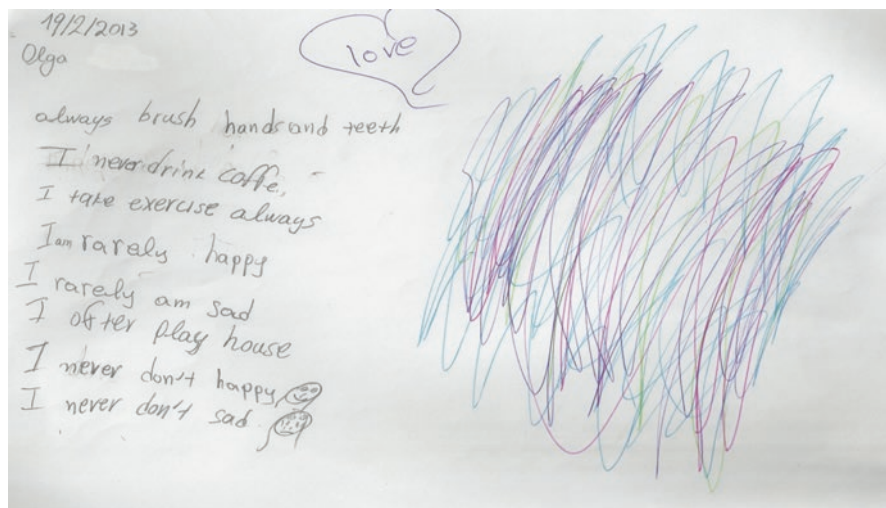 19/2/2013
Olga
love
always brush hands and teeth
I never drink coffe.
I take exercise always
I am rarely happy
I rarely am sad
I ofter play house
I never don't happy
I never don't sad